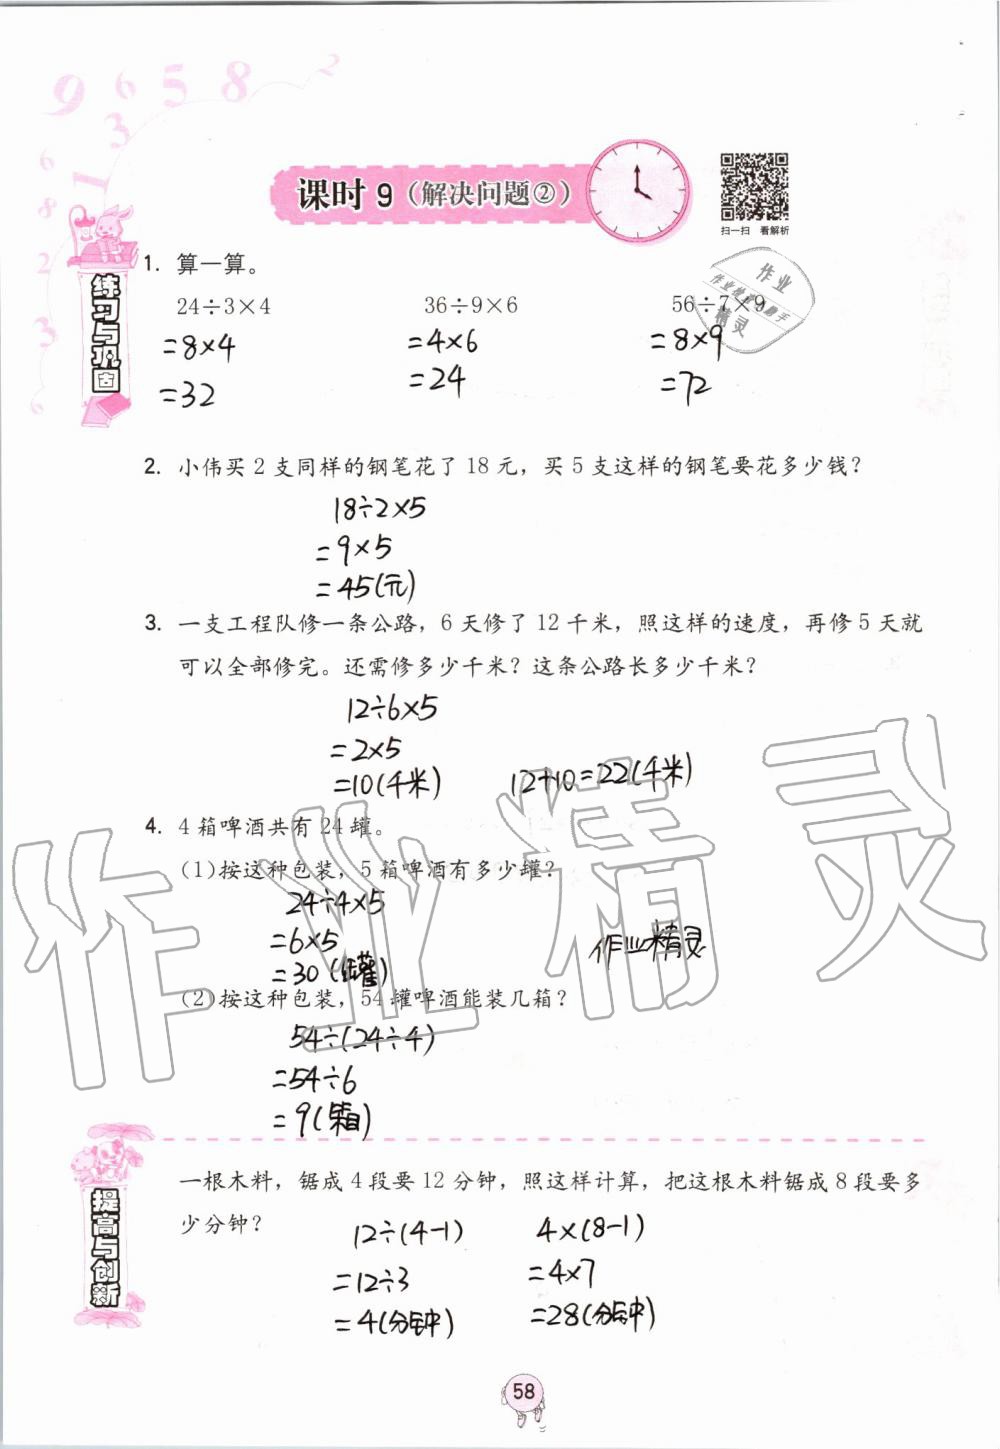 9 6 5 8 2
3
6 1
8
2
3
6
课时 9（解决问题②）
扫一扫 看解析
练习与巩固
作业
作业检查小助手
精灵
1. 算一算。
24÷3×4 36÷9×6 56÷7×9
=8×4 =4×6 =8×9
=32 =24 =72
2. 小伟买 2 支同样的钢笔花了 18 元，买 5 支这样的钢笔要花多少钱？
18÷2×5
=9×5
=45(元)
3. 一支工程队修一条公路，6 天修了 12 千米，照这样的速度，再修 5 天就
可以全部修完。还需修多少千米？这条公路长多少千米？
12÷6×5
=2×5
=10(千米) 12+10=22(千米)
4. 4 箱啤酒共有 24 罐。
(1)按这种包装，5 箱啤酒有多少罐？
24÷4×5
=6×5
=30(罐)
作业精灵
作业精灵
(2)按这种包装，54 罐啤酒能装几箱？
54÷(24÷4)
=54÷6
=9(箱)
提高与创新
一根木料，锯成 4 段要 12 分钟，照这样计算，把这根木料锯成 8 段要多
少分钟？
12÷(4-1) 4×(8-1)
=12÷3 =4×7
=4(分钟) =28(分钟)
58